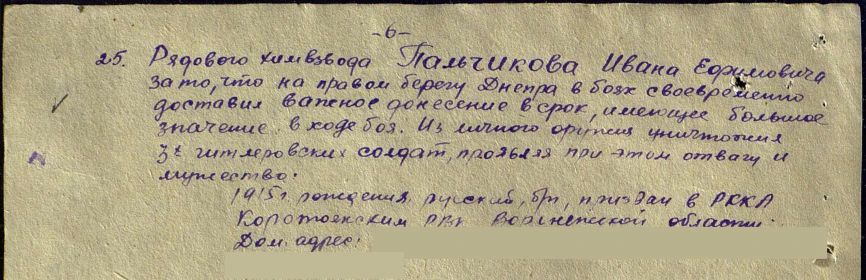 -6-
25. Рядового химвзвода Пальчикова Ивана Ефимовича
за то, что на правом берегу Днепра в боях своевременно
доставил важное донесение в срок, имеющее большое
значение в ходе боя. Из личного оружия уничтожил
3х гитлеровских солдат, проявляя при этом отвагу и
мужество.
1915 г. рождения, русский, б/п, призван в РККА
Коротоякским РВК Воронежской области.
Дом. адрес: